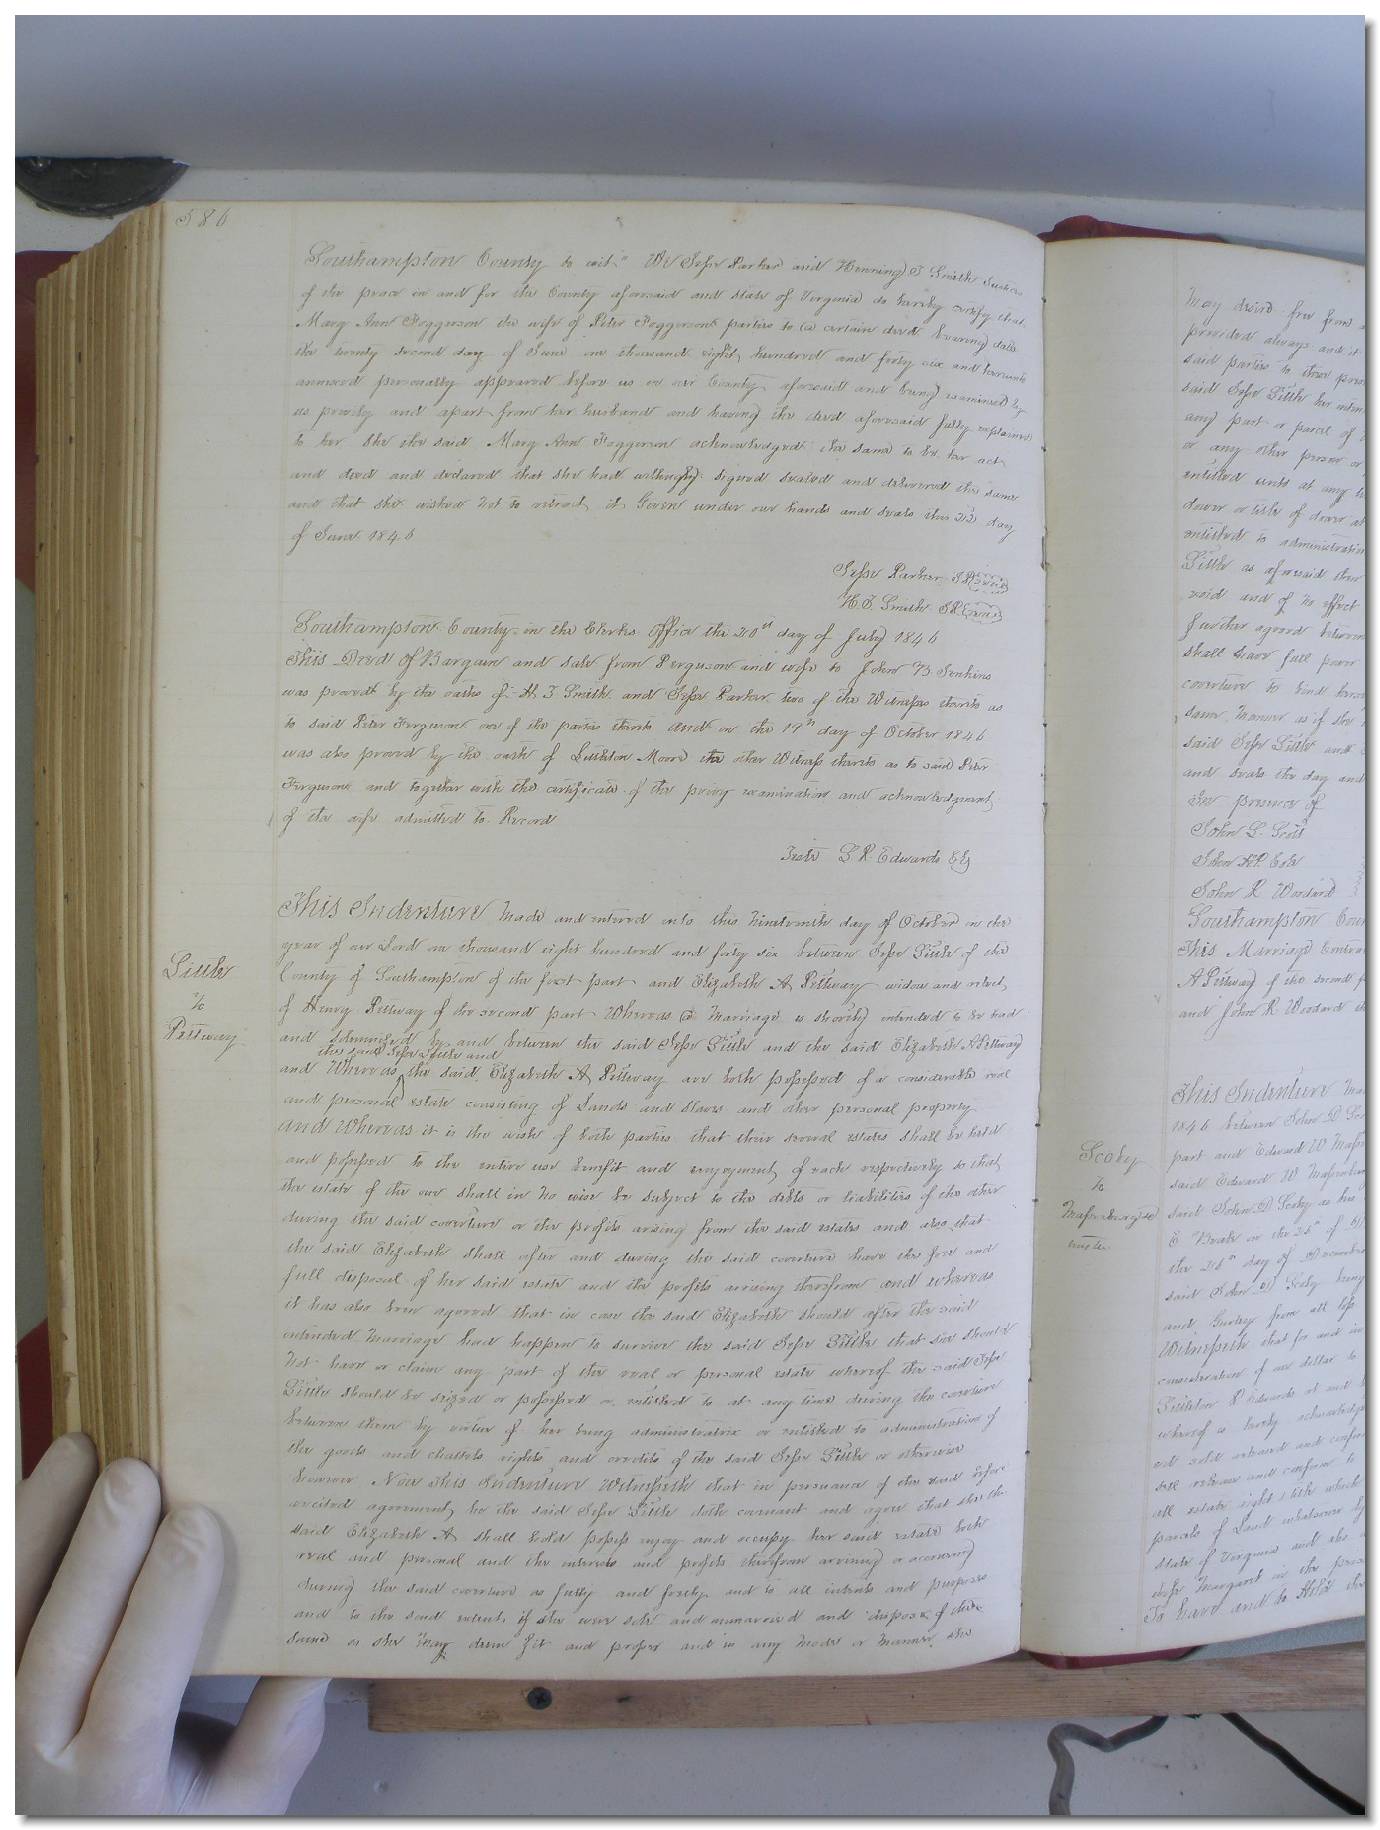 586
Southampton County to wit: We Jesse Parker and Henning T Smith Justices
of the peace in and for the County aforesaid and State of Virginia do hereby certify that
Mary Ann Foggerson the wife of Peter Foggerson parties to a certain deed bearing date
the twenty second day of June one thousand eight hundred and forty six and hereunto
annexed personally appeared before us in our County aforesaid and being examined by
us privily and apart from her husband and having the deed aforesaid fully explained
to her she the said Mary Ann Foggerson acknowledged the same to be her act
and deed and declared that she had willingly signed sealed and delivered the same
and that she wished not to retract it Given under our hands and seals this 22 day
of June 1846
Jesse Parker J.P. (seal)
H. T. Smith J.P. (seal)
Southampton County in the Clerks Office the 20th day of July 1846
This Deed of Bargain and Sale from Ferguson and wife to John B. Jenkins
was proved by the oaths of H. T Smith and Jesse Parker two of the Witnesses thereto as
to said Peter Ferguson one of the parties thereto And on the 19th day of October 1846
was also proved by the oath of Littleton Moore the other Witness thereto as to said Peter
Ferguson and together with the certificate of the privy examination and acknowledgment
of the wife admitted to Record
Teste L R. Edwards Clk
Little
To
Pettway
This Indenture Made and entered into this Nineteenth day of October in the
year of our Lord one thousand eight hundred and forty six between Jesse Little of the
County of Southampton of the first part and Elizabeth A Pettway widow and relict
of Henry Pettway of the second part Whereas a Marriage is shortly intended to be had
and solemnized by and between the said Jesse Little and the said Elizabeth A Pettway
the said Jesse Little and
and Whereas the said Elizabeth A Pettway are both possessed of a considerable real
and personal estate consisting of Lands and Slaves and other personal property
and Whereas it is the wish of both parties that their several estates shall be held
and possessed to the entire use benefit and enjoyment of each respectively so that
the estate of the one shall in no wise be subject to the debts or liabilities of the other
during the said coverture or the profits arising from the said estates and also that
the said Elizabeth shall after and during the said coverture have the free and
full disposal of her said estate and the profits arising therefrom and whereas
it has also been agreed that in case the said Elizabeth should after the said
intended Marriage had happen to survive the said Jesse Little that she should
Not have or claim any part of the real or personal estate whereof the said Jesse
Little should be seized or possessed or entitled to at any time during the coverture
between them by virtue of her being administratrix or entitled to administration of
the goods and chattels rights and credits of the said Jesse Little or otherwise
however Now this Indenture Witnesseth that in pursuance of the said before
recited agreement he the said Jesse Little doth covenant and agree that she the
said Elizabeth A shall hold possess enjoy and occupy her said estate both
real and personal and the interests and profits therefrom arising or accruing
during the said coverture as fully and freely and to all intents and purposes
and to the said extent if she were sole and unmarried and dispose of the
same as she May deem fit and proper and in any Mode or Manner she
May desire free from
provided always and it
said parties to these
said Jesse Little her
any part or parcel of
or any other person or
entitled unto at any
dower or title of dower
entitled to administration
Little as aforesaid then
void and of no effect
further agreed between
shall have full power
coverture to bind
same Manner as if she
said Jesse Little and
and seals the day and
In presence of
John L. Scott
John R Woodard
Southampton
This Marriage
A Pettway of the second
and John R Woodard
Scoby
To
This Indenture
1846 between John D
part and Edward W
said Edward W
said John D Scoby as his
the 25th day of December
said John D Scoby being
and Gurley from all
Witnesseth that for and in
consideration of one dollar to
whereof is hereby
all release and confirm to
all estate right title which
parcels of Land whatsoever
State of Virginia and also
wife Margaret in the
To have and to Hold the